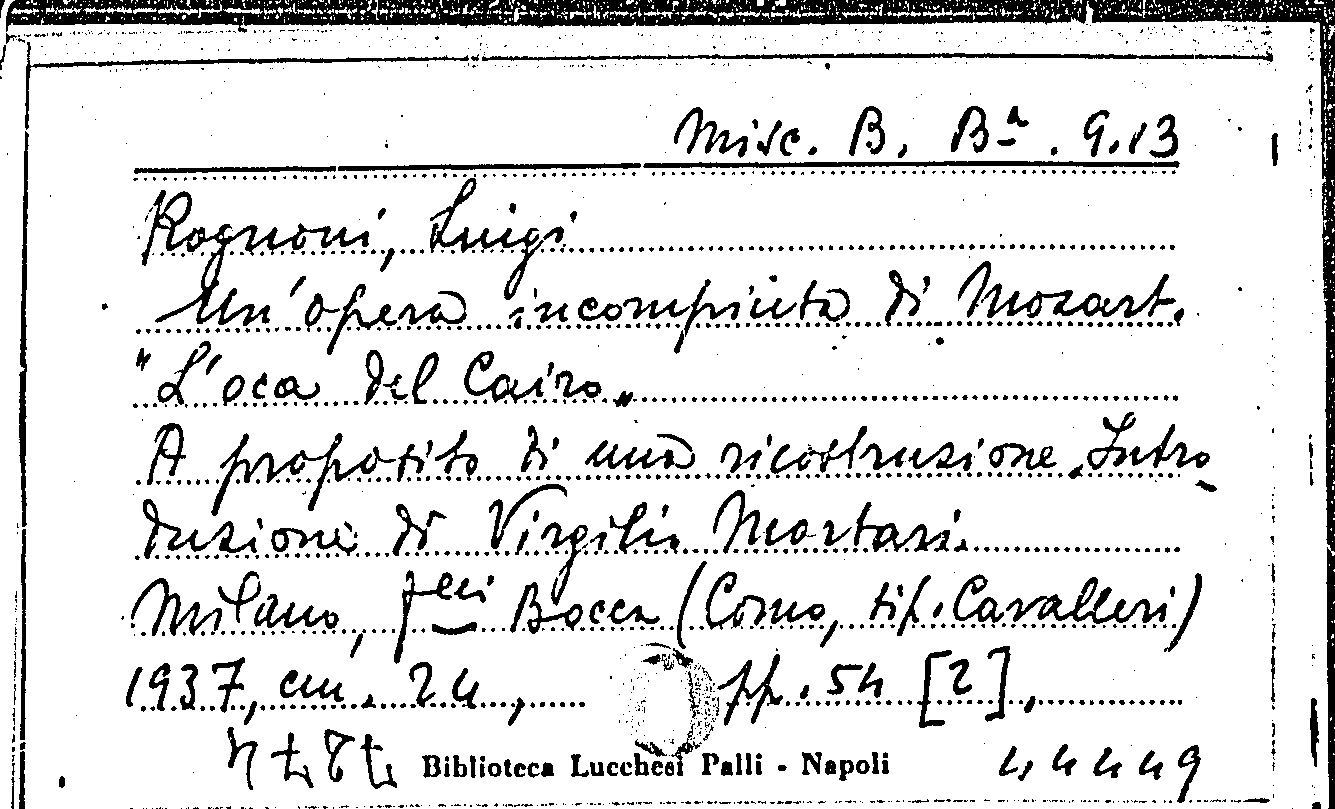 Misc. B. Bª. 9.13
Rognoni, Luigi
Un'opera incompiuta di Mozart.
"L'oca del Cairo„
A proposito di una ricostruzione. Intro-
duzione di Virgilio Mortari.
Milano, f.lli Bocca (Como, tip. Cavalleri)
1937, cm. 24, pp. 54 [2],
Biblioteca Lucchesi Palli - Napoli 44449